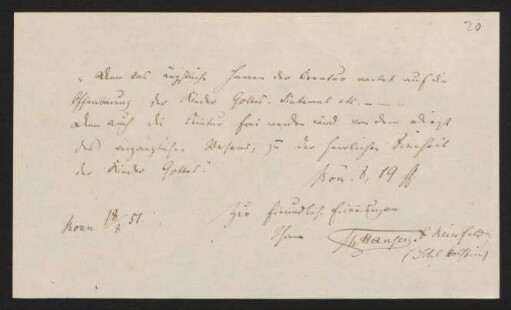 20
„Denn das ängstliche Harren der Creatur wartet auf die
Offenbarung der Kinder Gottes. Sintemal etc. — — —
Denn auch die Creatur frei werden wird von dem Dienst
des vergänglichen Wesens, zu der herrlichen Freiheit
der Kinder Gottes."
Röm. 8, 19 ff
Zur freundlichen Erinnerung
Bonn 18/8 51.
Hansen
(Schl. Holstein)